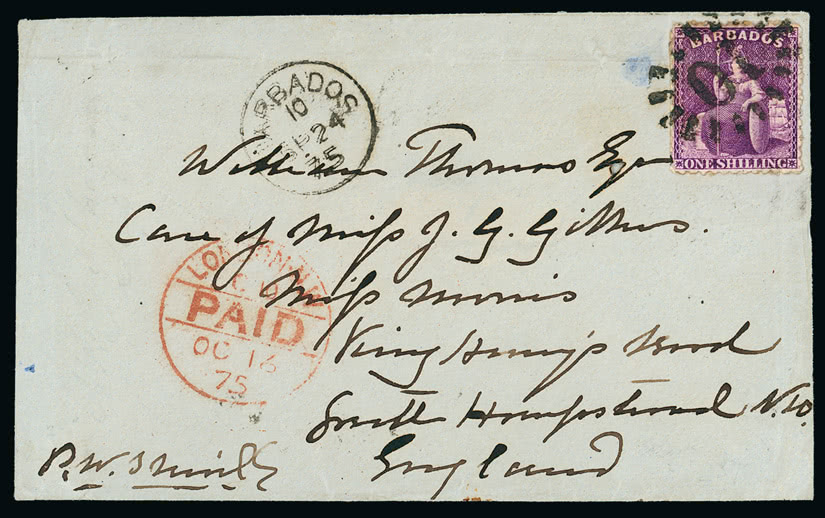 BARBADOS
ONE SHILLING
BARBADOS
10
SP 24
75
William Thomas Esq
Care of Miss J. G.
Miss Morris
King Henry's Road
South Hampstead N.W.
England
LONDON N.W
PAID
OC 16
75
P. W.